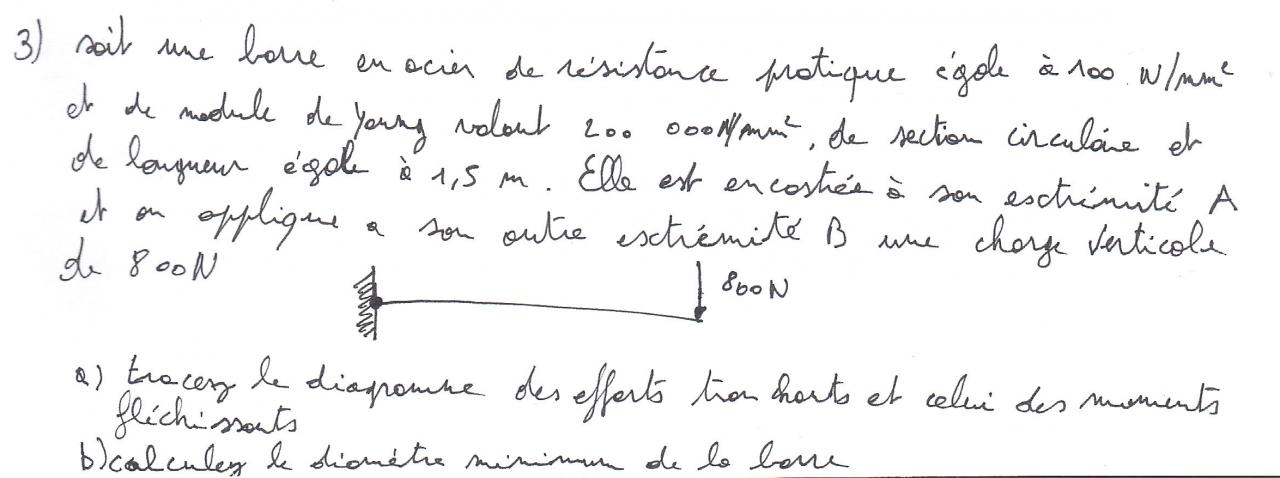 3) soit une barre en acier de résistance pratique égale à 100 N/mm²
et de module de Young valant 200 000N/mm², de section circulaire et
de longueur égale à 1,5 m. Elle est encastrée à son esctrémité A
et on applique a son autre esctrémité B une charge verticale
de 800N
800N
a) tracez le diagramme des efforts tranchants et celui des moments
fléchissants
b) calculez le diamètre minimum de la barre